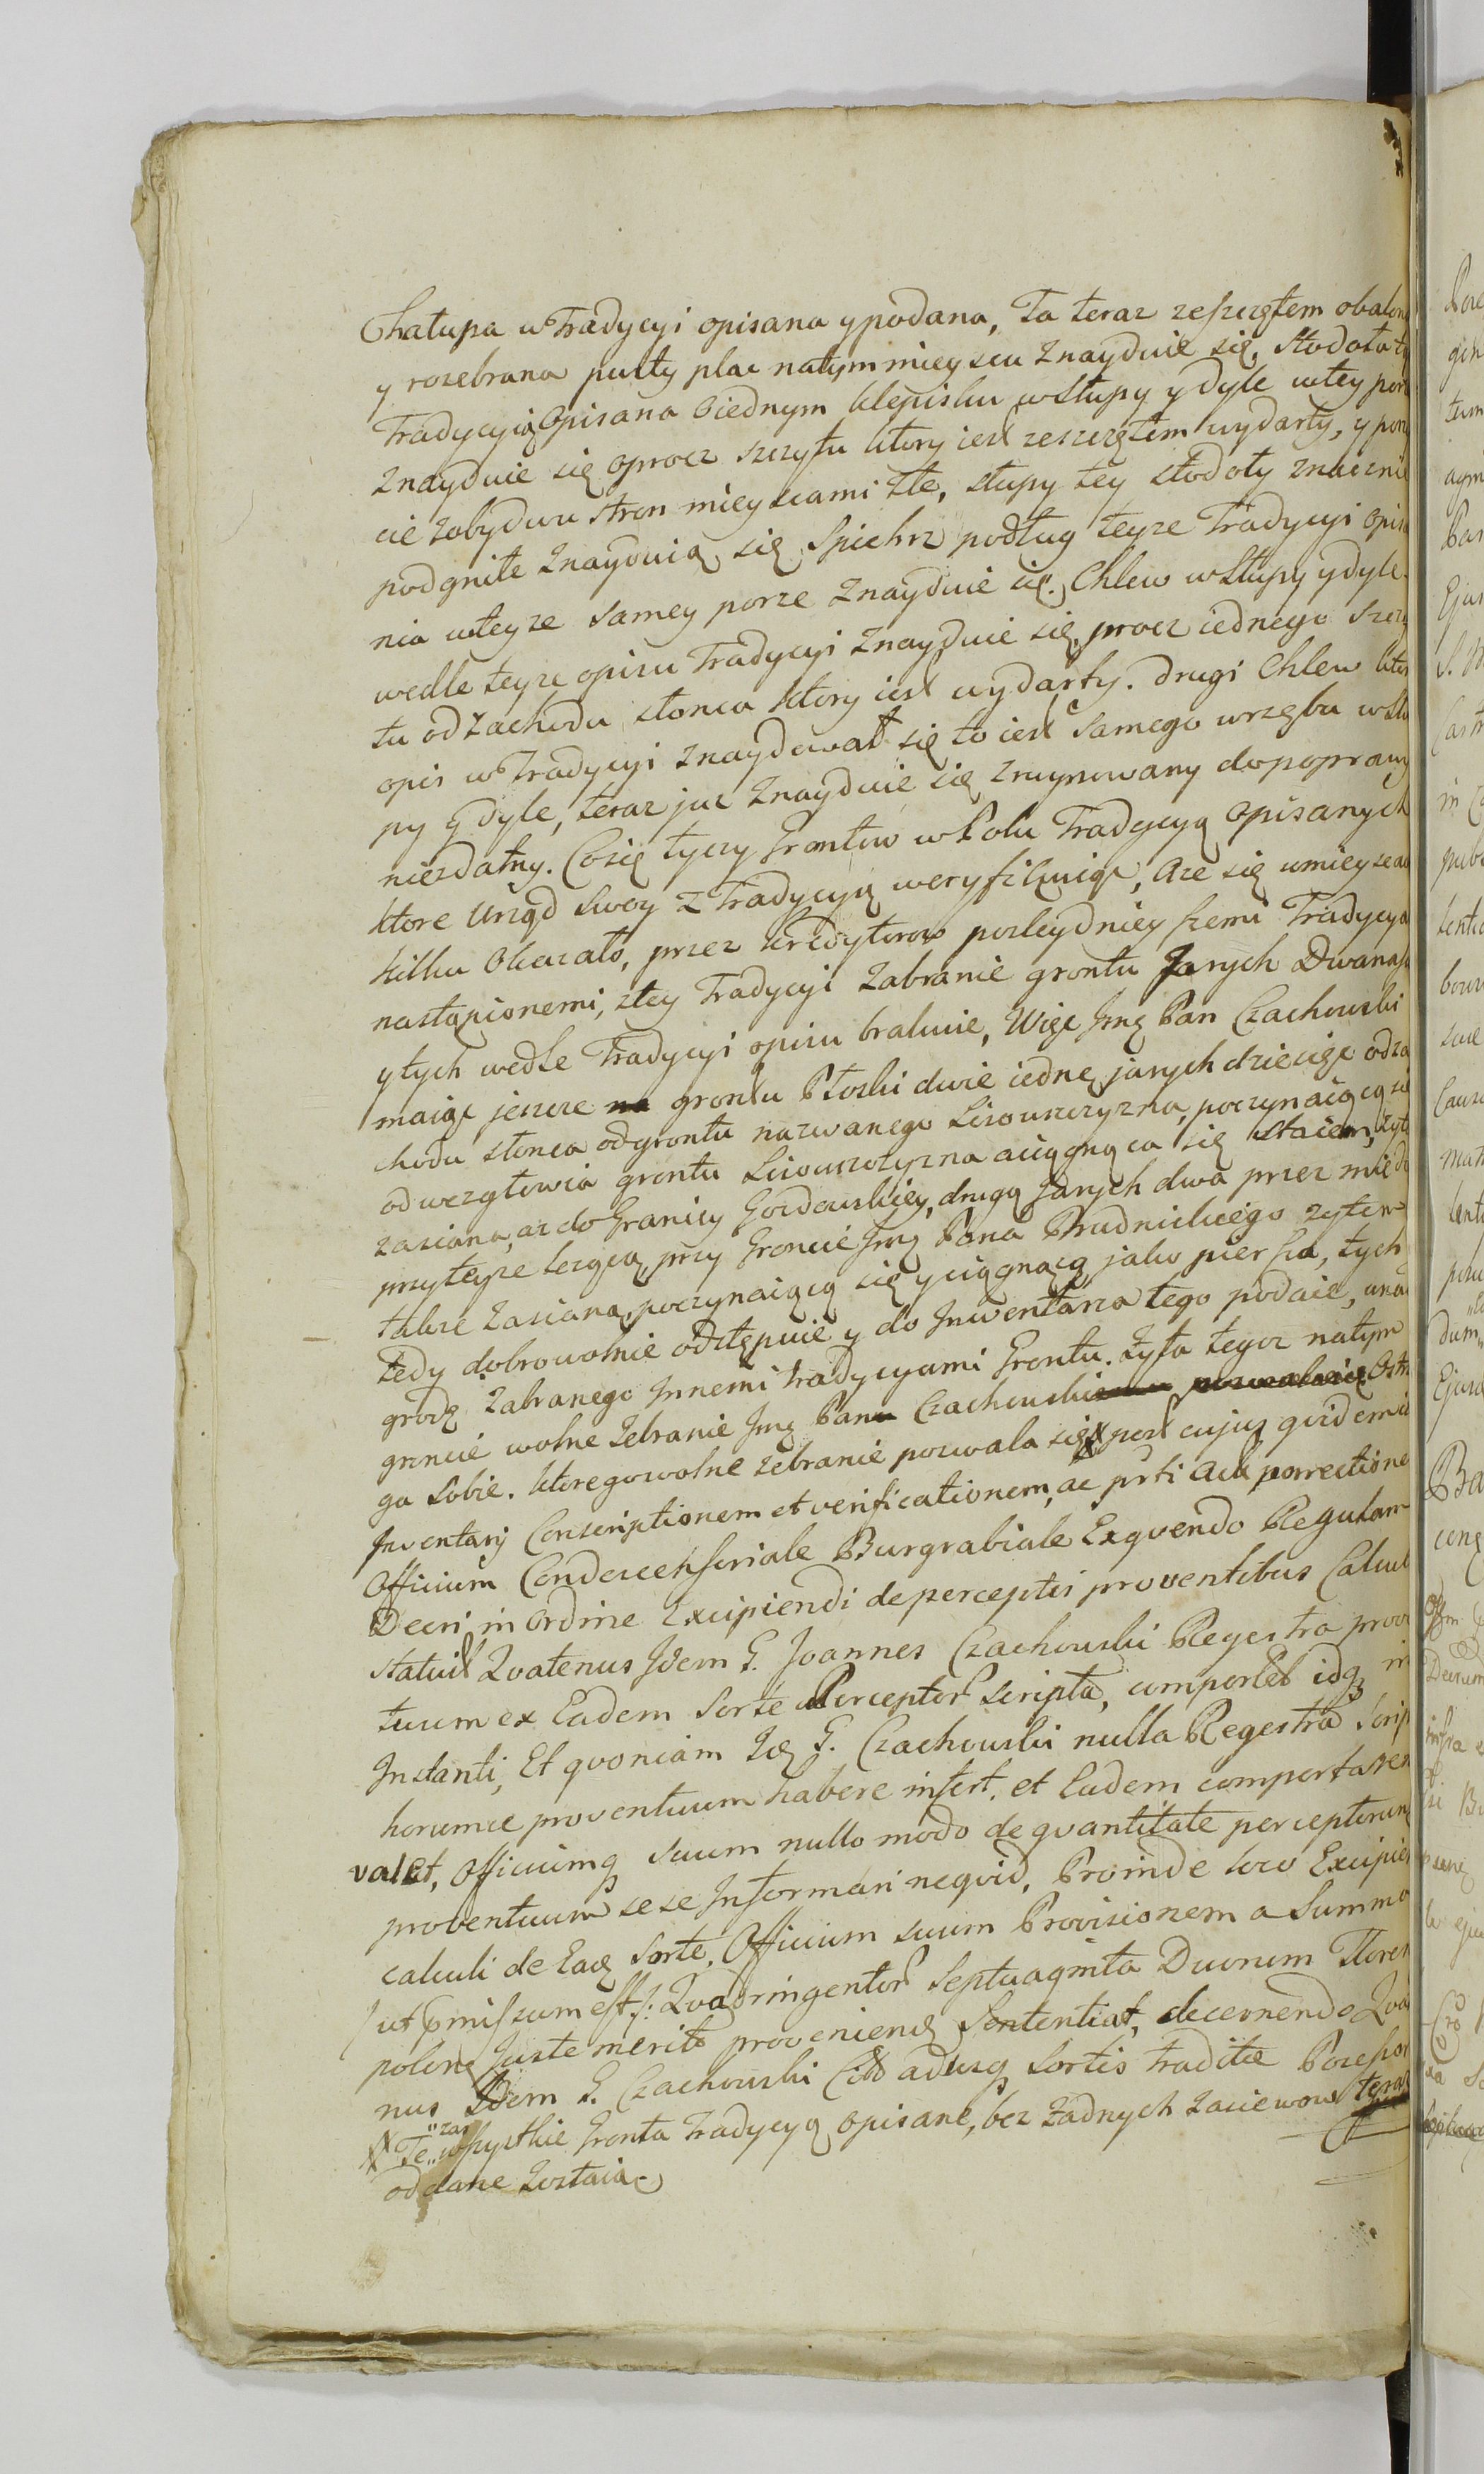 Chałupa w Tradycyi opisana y podana, Ta teraz zeszczętem obalon
y rozebrana pusty plac na tym mieyscu Znayduie się, Stodoła t
Tradycyią Opisana o iednym klepisku w słupy y dyle w tey por
Znayduie się oprocz szczytu ktory iest zeszczętem wydarty, y por
cie z obydwu stron mieyscami złe, słupy tey stodoły znacznie
podgniłe Znayduią się Spichrz podług teyze Tradycyi opis
nia w teyze samey porze Znayduie się. Chlew w słupy y dyle
wedle teyze opisu Tradycyi Znayduie się, procz iednego Szczy
tu od Zachodu słonca ktory iest wydarty. drugi Chlew ktor
opis w Tradycyi Znaydował się to iest samego wrzębu w słu
py y dyle, teraz juz Znayduie się zruynowany do poprawy
niezdatny. Co się tyczy Grontow w Polu Tradycyą opisanych
ktore Urząd swoy z Tradycyą weryfikuiąc, Aze się w mieyscach
kilku Okazało, przez kredytorow posleydnieyszemi Tradycya
nastąpionemi, z tey Tradycyi Zabranie grontu Jarych Dwanaś
y tych wedle Tradycyi opisu brakuie, Więc Jmę Pan Czachowski
maiąc jeszcze na grontu Płoski dwie iednę jarych dziecięc od za
chodu słonca od grontu nazwanego Lisowszczyzna, poczynaiącą się
od wezgłowia grontu Lisowszczyzna a ciągnąca się staiem, żyt
zasiana, az do Granicy Gozdowskiey, drugą Jarych dwa przez miedz
przy teyze lezącą, przy Groncie Jmę Pana Brudnickiego zytem
takze Zasianą, poczynaiącą się y ciągnącą jako piersza, tych
tedy dobrowolnie odstępuie y do Jnwentarza tego podaie, w na
grodę Zabranego Jnnemi tradycyami Grontu. Zyta tegoz na tym
groncie wolne Zebranie Jmę Pan Czachowski Ostrz
ga sobie. ktorego wolne zebranie pozwala się post cujus quidem i
Jnventarij Conscriptionem et verificationem, ac prti Actt porrectione
Officium Condescensoriale Burgrabiale Exqvendo Regulam
Decri in ordine Excipiendi de perceptis proventibus Calcul
statuit Qvatenus Jdem G. Joannes Czachowski Regestra prov
tuum ex Eadem Sorte Perceptor scripta, comportet idq in
Instanti, Et qvoniam Jdę G. Czachowski nulla Regestra Scrip
horumce proventuum habere infert, et Eadem comportaren
valet, Officiumq suum nullo modo de qvantitate perceptorum
proventuum sese Jnformari neqvid, Proinde loco Excipien
calculi de Eadę Sorte, Officium suum Provisionem a Summa
/ut pmissum est/: Quadringentor Septuaginta Duorum Floren
polonę Juste merito provenienę Sententiat, decernendo Qva
nus Idem G. Czachowski Citt adusq Sortis traditæ Possessor
"zas
Te" wszystkie Gronta Tradycyą opisane, bez Zadnych Zasiewow teraz
oddane Zostaią